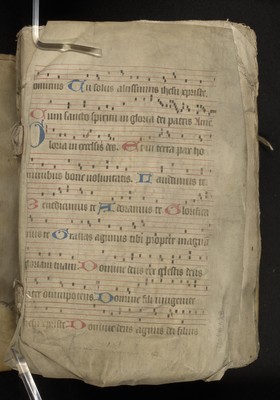 ominus Tu solus altissimus ihesu xpriste.
Cum sancto spiritu in gloria dei patris Ame
Gloria in excelsis deo. Et in terra pax ho
minibus bone voluntatis. Laudamus te.
Benedicimus te Adoramus te Glorifica
mus te Gratias agimus tibi propter magna
gloriam tuam Domine deus rex celestis deus
pater omnipotens Domine fili unigenite
ihesu xpriste Domine deus agnus dei filius